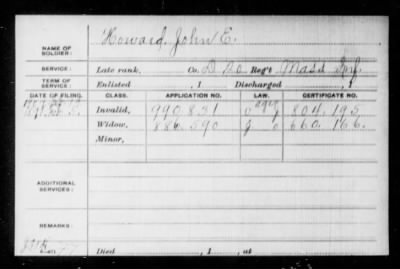 NAME OF SOLDIER: Howard, John E.
SERVICE: Late rank, Co. D 20 Reg't Mass Inf.
TERM OF SERVICE: Enlisted , 1 Discharged , 1
DATE OF FILING. CLASS. APPLICATION NO. LAW. CERTIFICATE NO.
Invalid, 990.831 804.195
Widow, 886.590 660.166.
Minor,
ADDITIONAL SERVICES:
REMARKS:
Died , 1 , at